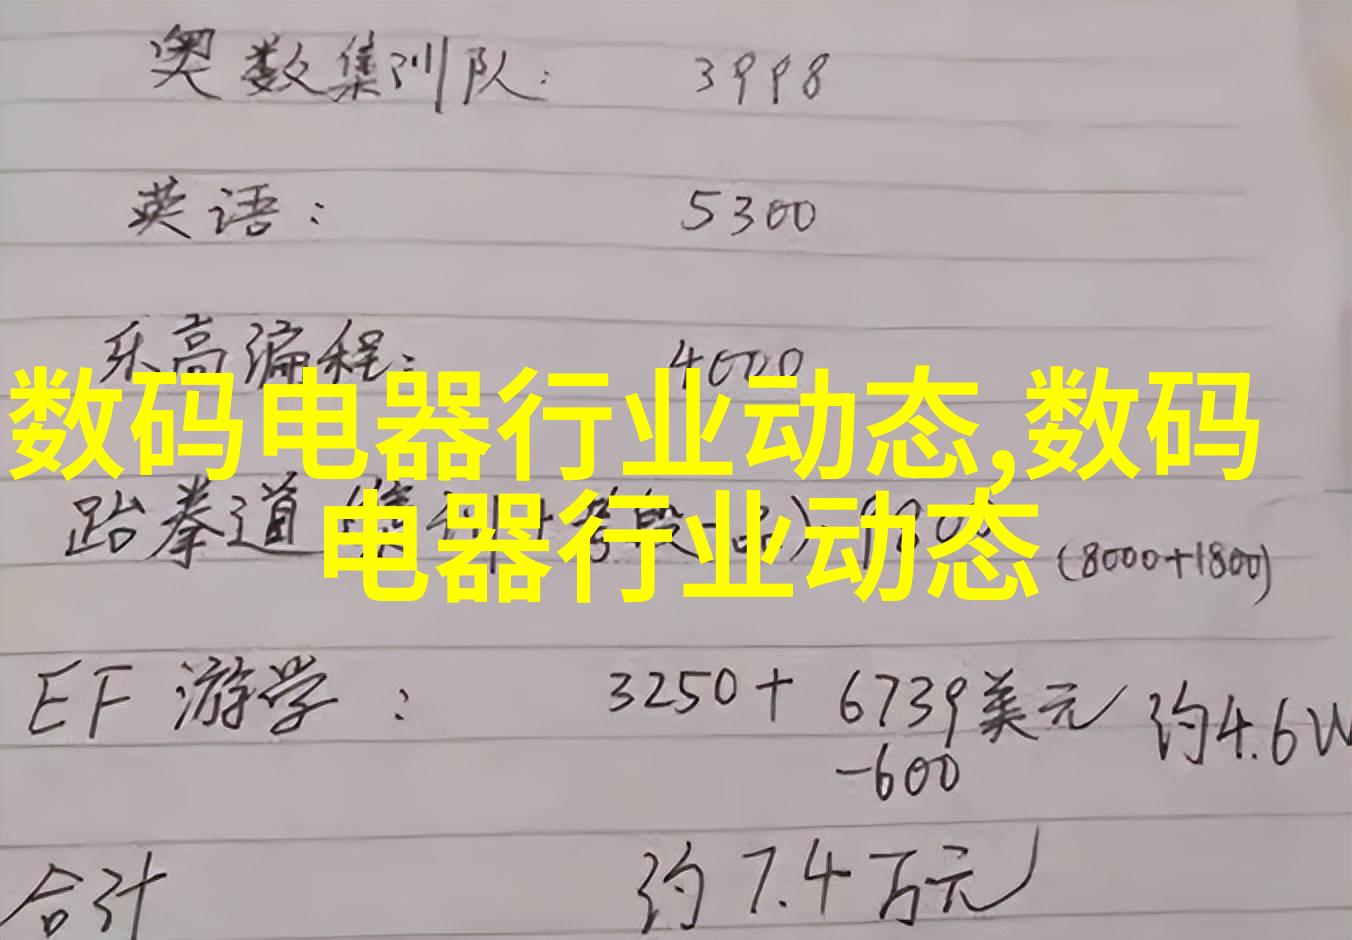 奥数集训队: 3998
英语: 5300
乐高编程: 4000
数码电器行业动态,数码
电器行业动态
跆拳道(集训+考段一品): 9800 (8000+1800)
EF 游学: 3250+ 6739美元 约4.6W
-600
合计 约7.4万元